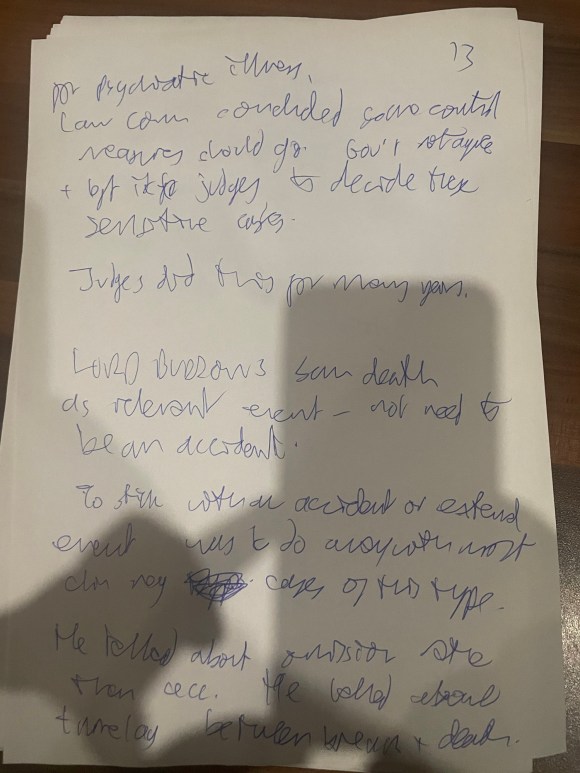 13
for psychiatric illness.
Law Com concluded some control
measures should go. Gov't not agree
+ left it for judges to decide these
sensitive cases.
Judges did this for many years.
LORD BURROWS saw death
as relevant event – not need to
be an accident.
To stick with an accident or extend
event was to do away with most
clin neg cases of this type.
He talked about omission
than acc. He talked about
time lag between breach + death.